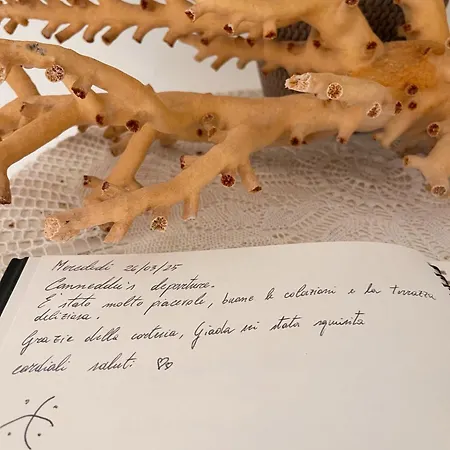 Mercoledì 26/03/25
Canneddu's departure.
È stato molto piacevole, buone le colazioni e la terrazza
deliziosa.
Grazie della cortesia, Giada sei stata squisita
cordiali saluti